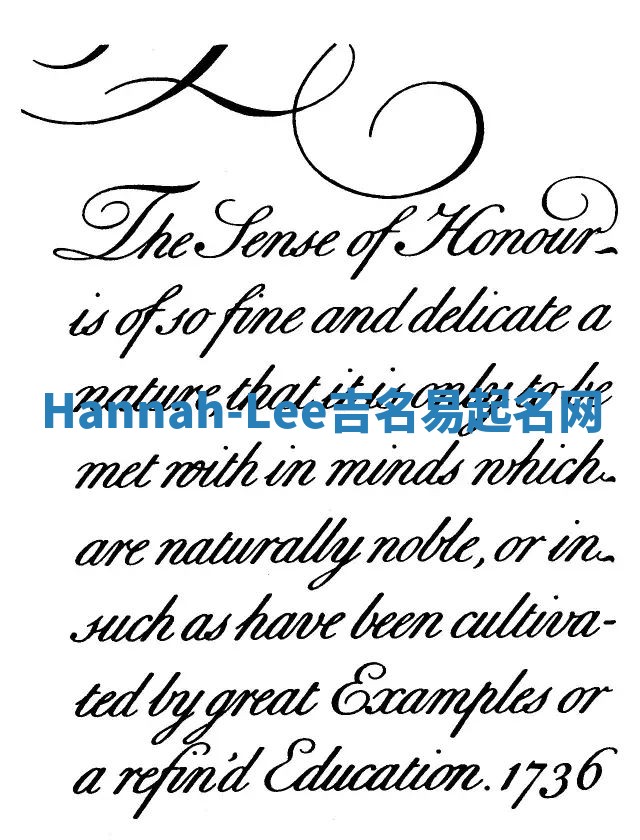 The Sense of Honour
is of so fine and delicate a
nature that it is only to be
Hannah-Lee吉名易起名网
met with in minds which
are naturally noble, or in
such as have been cultiva-
ted by great Examples or
a refin'd Education. 1736